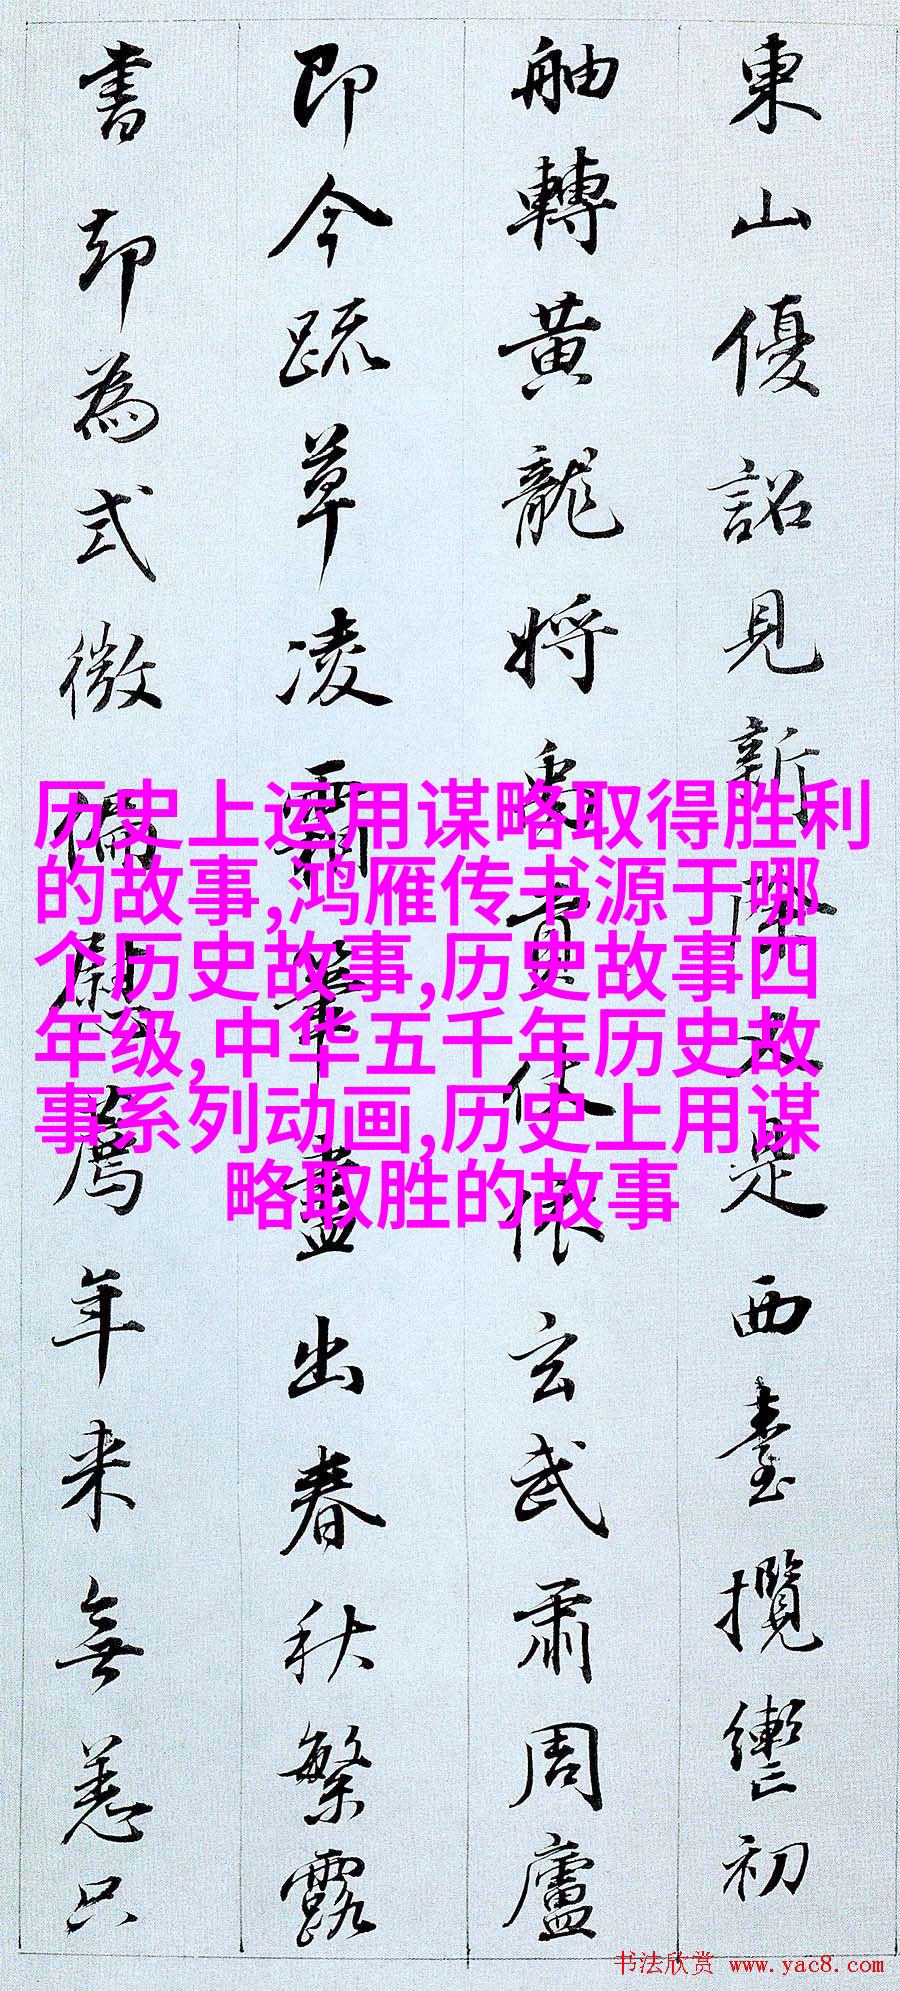 東山優詔見新除又是西臺攬轡初
舳轉黃龍將禹貢仗依玄武肅周廬
即今疏草凌霜筆盡出春秋繁露
書却為式微偏慰薦年来無恙只
历史上运用谋略取得胜利
的故事,鸿雁传书源于哪
个历史故事,历史故事四
年级,中华五千年历史故
事系列动画,历史上用谋
略取胜的故事
书法欣赏 www.yac8.com